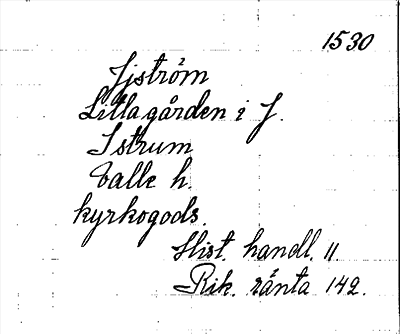 1530
Ijström
Lillagården i I.
Istrum
Valle h.
kyrkogods.
Hist. handl. 11.
Rik. ränta 142.